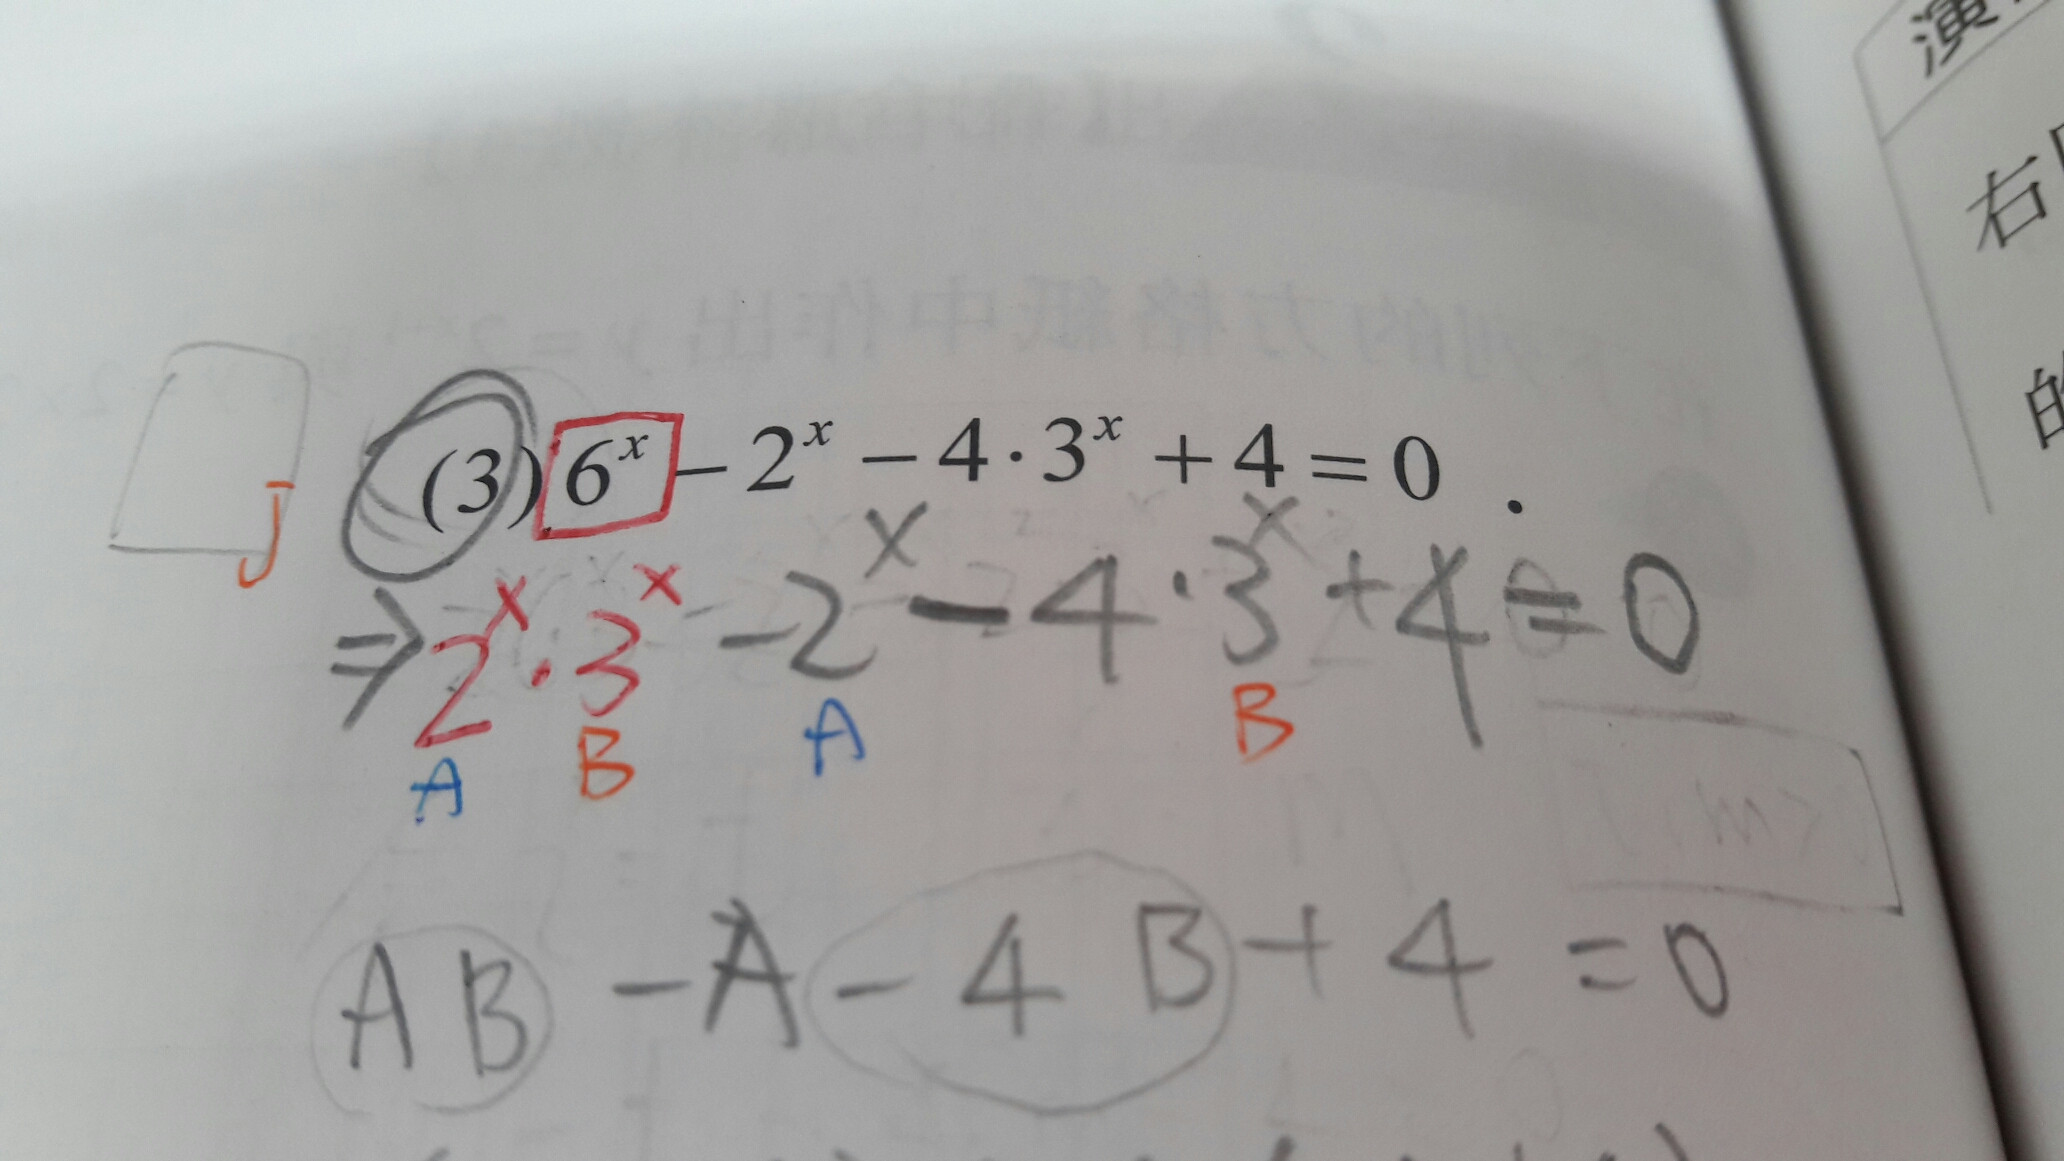 演
右
的
(3) 6ˣ − 2ˣ − 4 · 3ˣ + 4 = 0 .
⇒ 2ˣ · 3ˣ − 2ˣ − 4 · 3ˣ + 4 = 0
A B A B
AB − A − 4B + 4 = 0